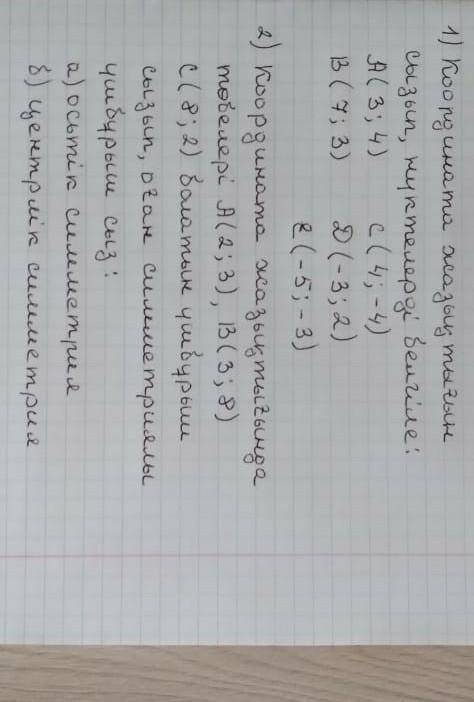 1) Координата жазықтығын
сызып, нүктелерді белгіле:
A(3; 4) C(4; -4)
B(7; 3) D(-3; 2)
E(-5; -3)
2) Координата жазықтығында
төбелері A(2; 3), B(3; 8)
C(8; 2) болатын үшбұрыш
сызып, оған симметриялы
үшбұрыш сыз:
а) осьтік симметрия
б) центрлік симметрия